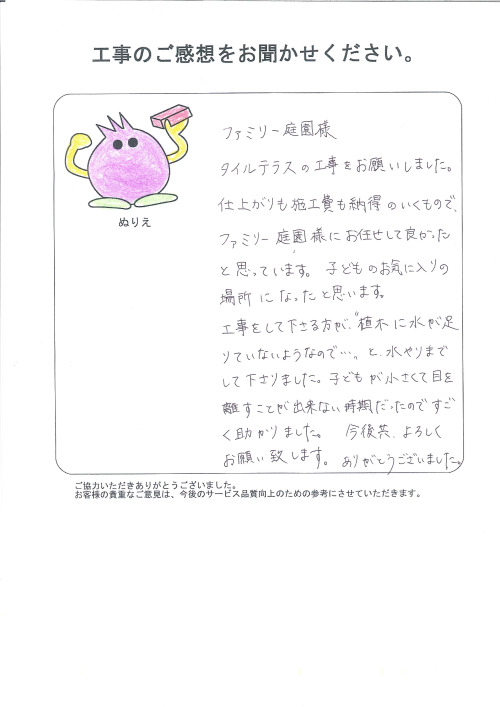 工事のご感想をお聞かせください。
ぬりえ
ファミリー庭園様
タイルテラスの工事をお願いしました。
仕上がりも施工費も納得のいくもので、
ファミリー庭園様にお任せして良かった
と思っています。子どものお気に入りの
場所になったと思います。
工事をして下さる方が、"植木に水が足
りていないようなので…。と、水やりまで
して下さりました。子どもが小さくて目を
離すことが出来ない時期だったのですご
く助かりました。 今後共、よろしく
お願い致します。ありがとうございました。
ご協力いただきありがとうございました。
お客様の貴重なご意見は、今後のサービス品質向上のための参考にさせていただきます。